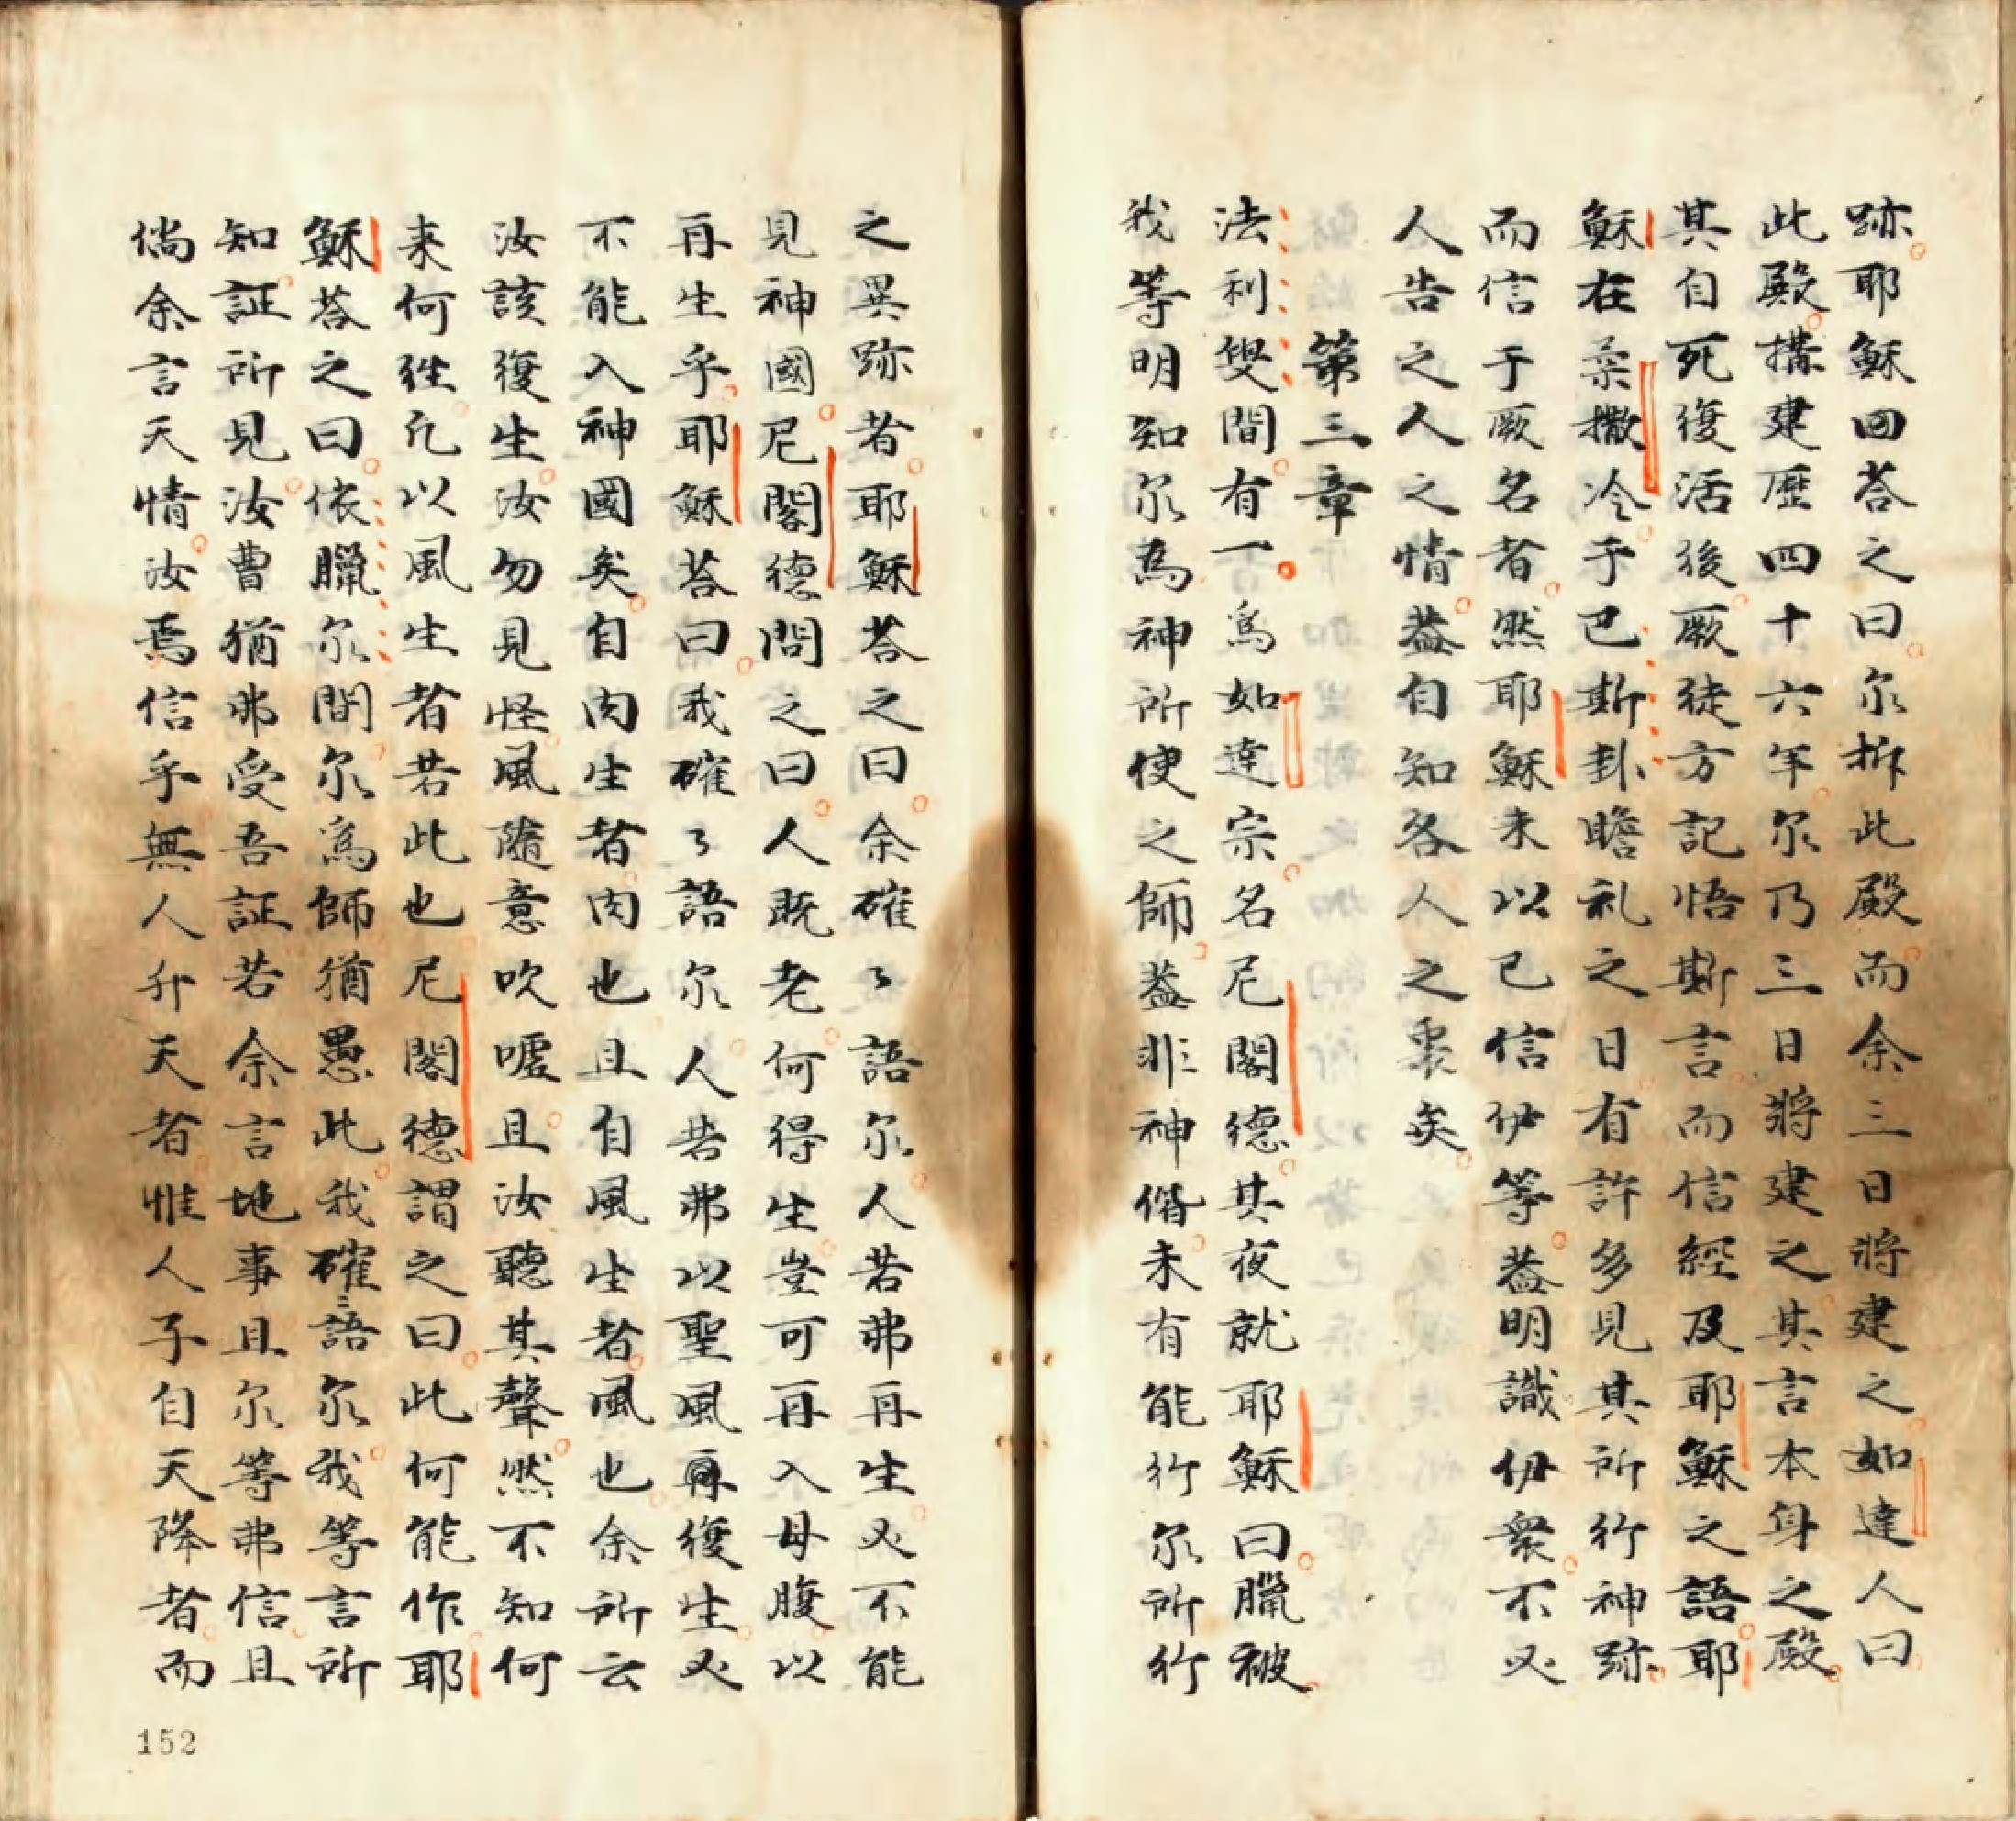 跡耶穌回荅之曰尔拆此殿而余三日將建之如達人曰
此殿搆建歷四十六年尔乃三日將建之其言本身之殿
其自死復活後厥徒方記悟斯言而信經及耶穌之語耶
穌在柔撒冷于巴斯卦瞻礼之日有許多見其所行神跡
而信于厥名者然耶穌未以已信伊等葢明識伊衆不必
人告之人之情葢自知各人之裏矣
第三章
法利叟間有一為如達宗名尼閣德其夜就耶穌曰臘被
我等明知尔為神所使之師葢非神偕未有能行尔所行
之異跡者耶穌荅之曰余確々語尔人若弗再生必不能
見神國尼閣德問之曰人既老何得生豈可再入母腹以
再生乎耶穌荅曰我確々語尔人若弗以聖風再復生必
不能入神國矣自肉生者肉也且自風生者風也余所云
汝該復生汝勿見怪風隨意吹噓且汝聽其聲然不知何
来何徃凢以風生者若此也尼閣德謂之曰此何能作耶
穌荅之曰依臘尔間尔為師猶愚此我確〻語尔我等言所
知証所見汝曹猶弗受吾証若余言地事且尔等弗信且
倘余言天情汝焉信乎無人升天者惟人子自天降者而
152